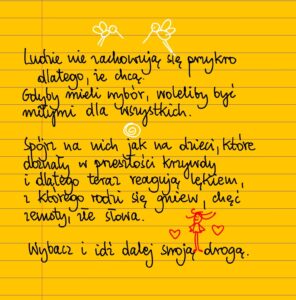 Ludzie nie zachowują się przykro
dlatego, że chcą.
Gdyby mieli wybór, woleliby być
miłymi dla wszystkich.
Spójrz na nich jak na dzieci, które
doznały w przeszłości krzywdy
i dlatego teraz reagują lękiem,
z którego rodzi się gniew, chęć
zemsty, złe słowa.
Wybacz i idź dalej swoją drogą.